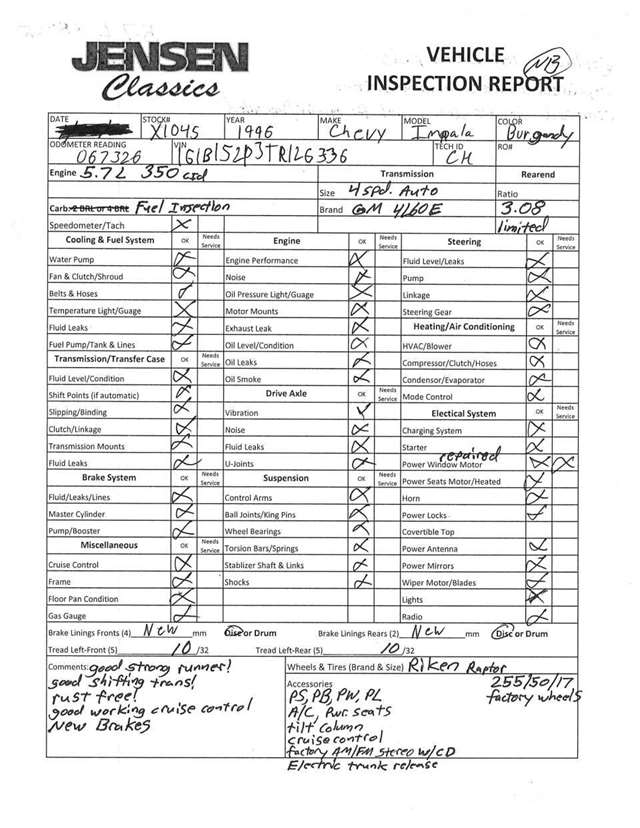 JENSEN
Classics
VEHICLE
INSPECTION REPORT
NB
DATE STOCK# YEAR MAKE MODEL COLOR
X1045 1996 Chevy Impala Burgandy
ODOMETER READING VIN TECH ID RO#
067326 1G1B152P3TR126336 CH
Engine 5.7L 350 cid Transmission Rearend
Size 4 spd. Auto Ratio
Carb: 2 BRL or 4 BRL Fuel Inspection Brand GM 4L60E 3.08
Speedometer/Tach limited
Cooling & Fuel System OK Needs Service Engine OK Needs Service Steering OK Needs Service
Water Pump Engine Performance Fluid Level/Leaks
Fan & Clutch/Shroud Noise Pump
Belts & Hoses Oil Pressure Light/Guage Linkage
Temperature Light/Guage Motor Mounts Steering Gear
Fluid Leaks Exhaust Leak Heating/Air Conditioning OK Needs Service
Fuel Pump/Tank & Lines Oil Level/Condition HVAC/Blower
Transmission/Transfer Case OK Needs Service Oil Leaks Compressor/Clutch/Hoses
Fluid Level/Condition Oil Smoke Condensor/Evaporator
Shift Points (if automatic) Drive Axle OK Needs Service Mode Control
Slipping/Binding Vibration Electical System OK Needs Service
Clutch/Linkage Noise Charging System
Transmission Mounts Fluid Leaks Starter repaired
Fluid Leaks U-Joints Power Window Motor
Brake System OK Needs Service Suspension OK Needs Service Power Seats Motor/Heated
Fluid/Leaks/Lines Control Arms Horn
Master Cylinder Ball Joints/King Pins Power Locks
Pump/Booster Wheel Bearings Covertible Top
Miscellaneous OK Needs Service Torsion Bars/Springs Power Antenna
Cruise Control Stablizer Shaft & Links Power Mirrors
Frame Shocks Wiper Motor/Blades
Floor Pan Condition Lights
Gas Gauge Radio
Brake Linings Fronts (4) New mm Disc or Drum Brake Linings Rears (2) New mm Disc or Drum
Tread Left-Front (5) 10 /32 Tread Left-Rear (5) 10 /32
Comments: good strong runner!
good shifting trans!
rust free!
good working cruise control
New Brakes
Wheels & Tires (Brand & Size) Riken Raptor
255/50/17
factory wheels
Accessories
PS, PB, PW, PL
A/C, Pwr. seats
tilt column
cruise control
factory AM/FM stereo w/CD
Electric trunk release